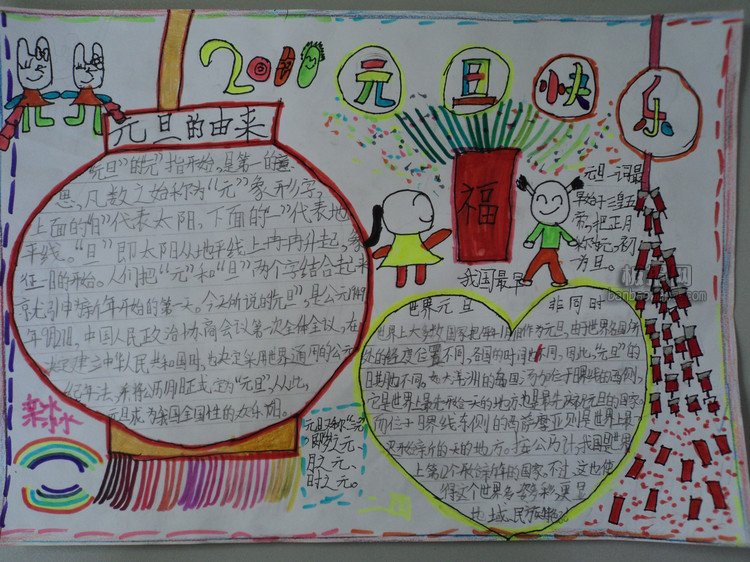 元旦快乐
元旦的由来
元旦"的元"指开始,是第一的意
思,凡数之始称为"元"象形字,
上面的"日"代表太阳,下面的"一"代表地
平线。"旦"即太阳从地平线上冉冉升起,象
征一日的开始。人们把"元"和"旦"两个字结合起来
就引申为新年开始的第一天。今天所说的元旦",是公元
年9月27日,中国人民政治协商会议第一次全体会议,在
决定建立中华人民共和国时,也决定采用世界通用的公元
纪年法,并将公历1月1日正式定为"元旦"从此,
元旦成为我国全国性的欢乐节。
福
元旦一词最
早始于三皇五
帝,把正月
称元,初一
为旦。
我国最早
世界元旦 非同时
世界上大多数国家把每年1月1日作为元旦,由于世界各国所
处的经度位置不同,各国的时间也不同,因此,"元旦"的
日期也不同。如大洋洲的岛国汤加位于日界线的西侧,
它是世界上最先开始一天的地方,也是最先庆祝元旦的国家。
而位于日界线东侧的西萨摩亚则是世界上最
迟开始新的一天的地方。按公历计,我国是世界
上第12个开始新年的国家,不过,这也使
得这个世界多姿多彩,更显
地域、民族
元旦又称"三元"
即岁之元、
月之元、
时之元。